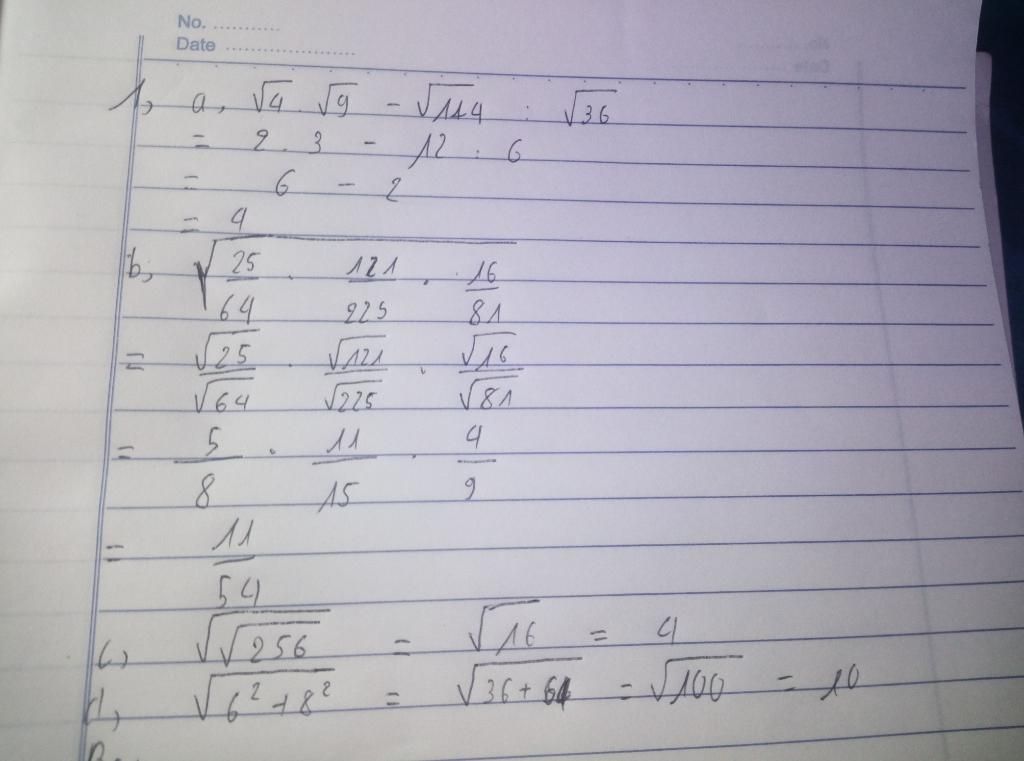 No. ...........
Date ......................
1, a, √4 . √9 - √144 : √36
= 2 . 3 - 12 : 6
= 6 - 2
= 4
b, √(25/64 . 121/225 . 16/81)
= √25/√64 . √121/√225 . √16/√81
= 5/8 . 11/15 . 4/9
= 11/54
c, √√256 = √16 = 4
d, √(6² + 8²) = √(36 + 64) = √100 = 10